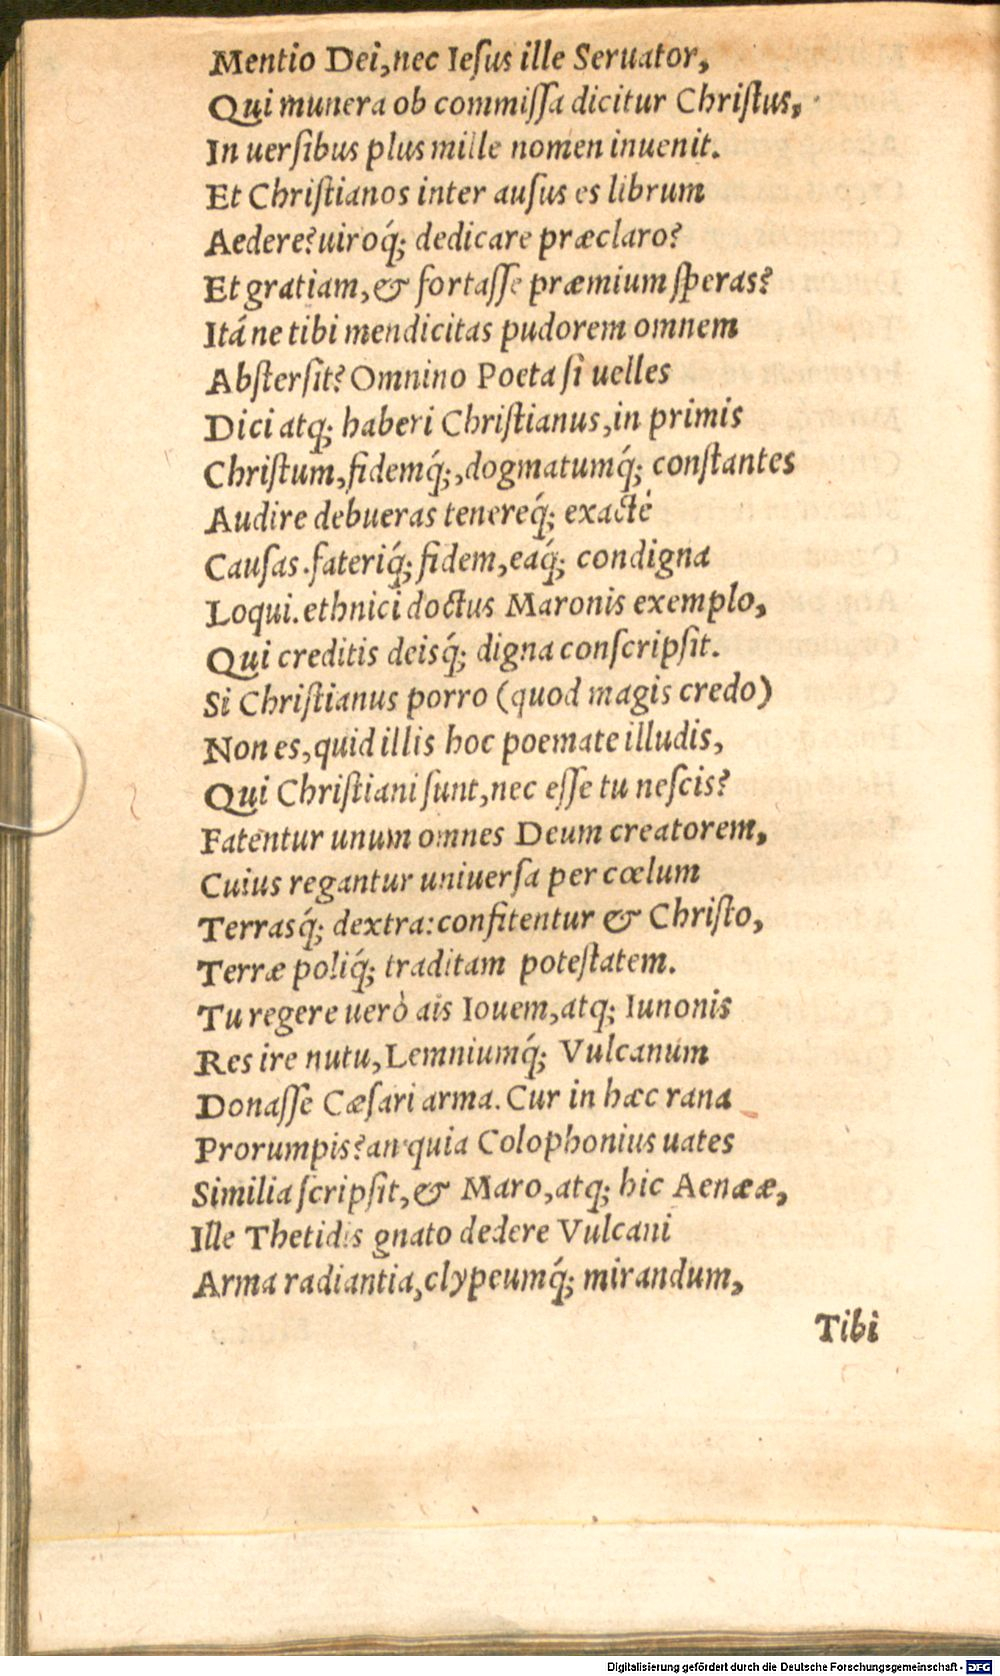 Mentio Dei, nec Ieſus ille Seruator,
Qui munera ob commiſſa dicitur Chriſtus,
In uerſibus plus mille nomen inuenit.
Et Chriſtianos inter auſus es librum
Aedere? uiroq́; dedicare præclaro?
Et gratiam, & fortaſſe præmium ſperas?
Itáne tibi mendicitas pudorem omnem
Abſterſit? Omnino Poeta ſi uelles
Dici atq; haberi Chriſtianus, in primis
Chriſtum, fidemq́;, dogmatumq́; conſtantes
Audire debueras tenereq́; exactè
Cauſas. fateriq́; fidem, eaq́; condigna
Loqui. ethnici doctus Maronis exemplo,
Qui creditis deisq́; digna conſcripſit.
Si Chriſtianus porro (quod magis credo)
Non es, quid illis hoc poemate illudis,
Qui Chriſtiani ſunt, nec eſſe tu neſcis?
Fatentur unum omnes Deum creatorem,
Cuius regantur uniuerſa per cœlum
Terrasq́; dextra: confitentur & Chriſto,
Terræ poliq́; traditam poteſtatem.
Tu regere uerò ais Iouem, atq; Iunonis
Res ire nutu, Lemniumq́; Vulcanum
Donaſſe Cæſari arma. Cur in hæc rana
Prorumpis? an quia Colophonius uates
Similia ſcripſit, & Maro, atq; hic Aenææ,
Ille Thetidis gnato dedere Vulcani
Arma radiantia, clypeumq́; mirandum,
Tibi
Digitalisierung gefördert durch die Deutsche Forschungsgemeinschaft - DFG